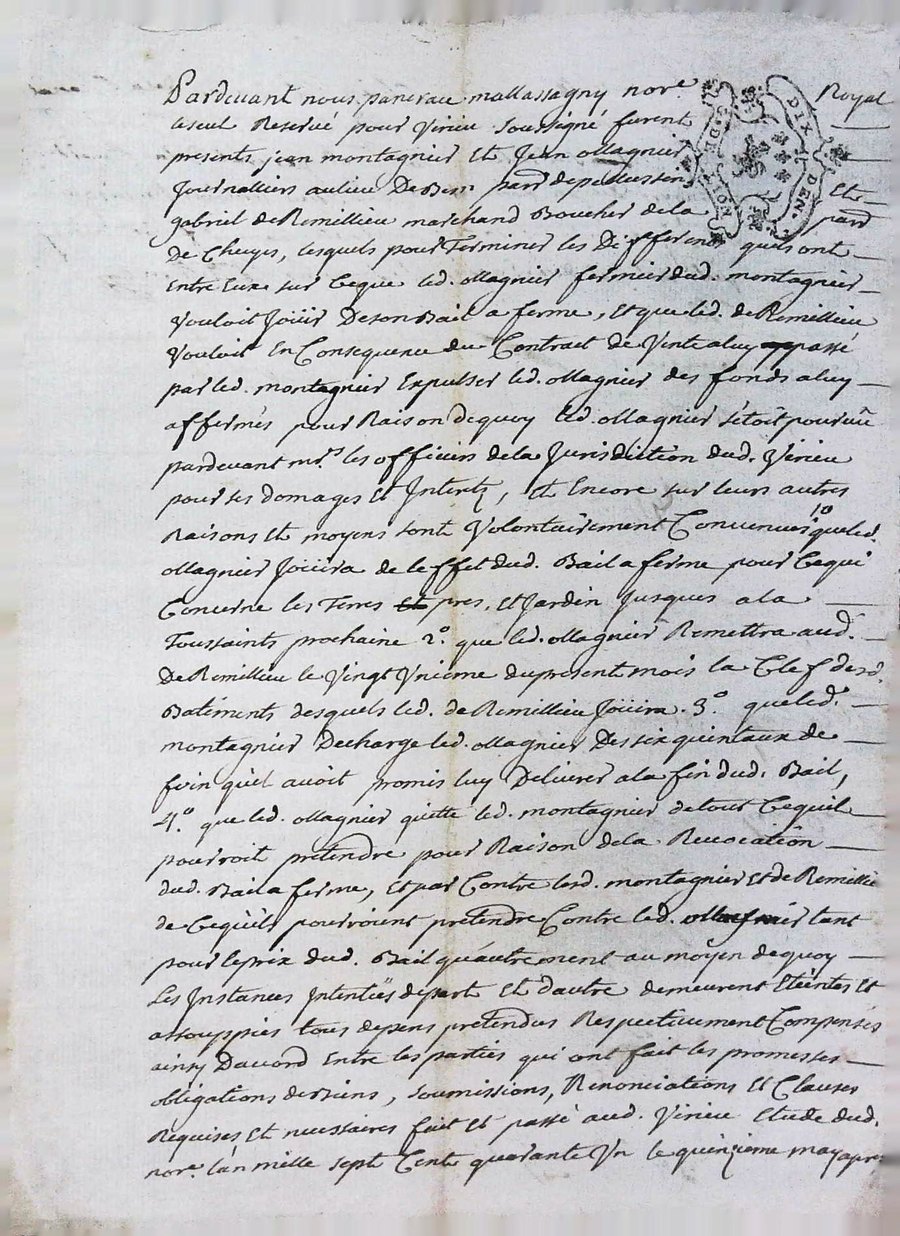 Pardevant nous pancrace mallassagny nore. Royal
le seul Reservé pour Virieu soussigné furent
presents jean montagnier Et Jean ollagnier
Journalliers au lieu De Bem parr de pelussen Et
gabriel de Remillieu marchand Boucher de la parr
De Chuyes, lesquels pour Terminer les Differents quils ont
Entre Eux sur Ceque led. ollagnier fermier dud. montagnier
Vouloit Joüir De son Bail a ferme, Et que led. de Remillieu
Vouloit En Consequence du Contract de Vente a luy passé
par led. montagnier Expulser led. ollagnier des fonds a luy
affermés pour Raison de quoy led. ollagnier s'étoit pourvû
pardevant mrs. les officiers de la Jurisdiction dud. Virieu
pour ses domages Et Interetz, Et Encore sur leurs autres
Raisons Et moyens sont Volontairement Convenues 1º que led.
ollagnier Joüira de l'effet dud. Bail a ferme pour Cequi
Concerne les Terres Et pres, Et Jardin jusques a la
Toussaints prochaine 2º. que led. ollagnier Remettra aud.
De Remillieu le Vingt Unieme du present mois la Clef desd.
Batiments desquels led. de Remillieu Joüira. 3º. que led.
montagnier Decharge led. ollagnier Des six quintaux de
foin quil avoit promis luy Delivrer a la fin dud. Bail,
4º. que led. ollagnier quitte led. montagnier de tout Cequil
pourroit pretendre pour Raison de la Revocation
dud. Bail a ferme, Et par Contre lesd. montagnier Et de Remillieu
de Cequ'ils pourroient pretendre Contre led. ollagnier tant
pour le prix dud. Bail qu'autrement au moyen de quoy
Les Instances Intentées de part Et d'autre demeurent Eteintes Et
assouppies tous depens pretendus Respectivement Compensés
ainsy Dacord Entre les parties qui ont fait les promesses
obligations de biens, soumissions, Renonciations Et Clauses
Requises Et necessaires fait Et passé aud. Virieu Etude dud.
nore. l'an mille sept Cent quarante Un le quinzieme may apres
DIX DEN.